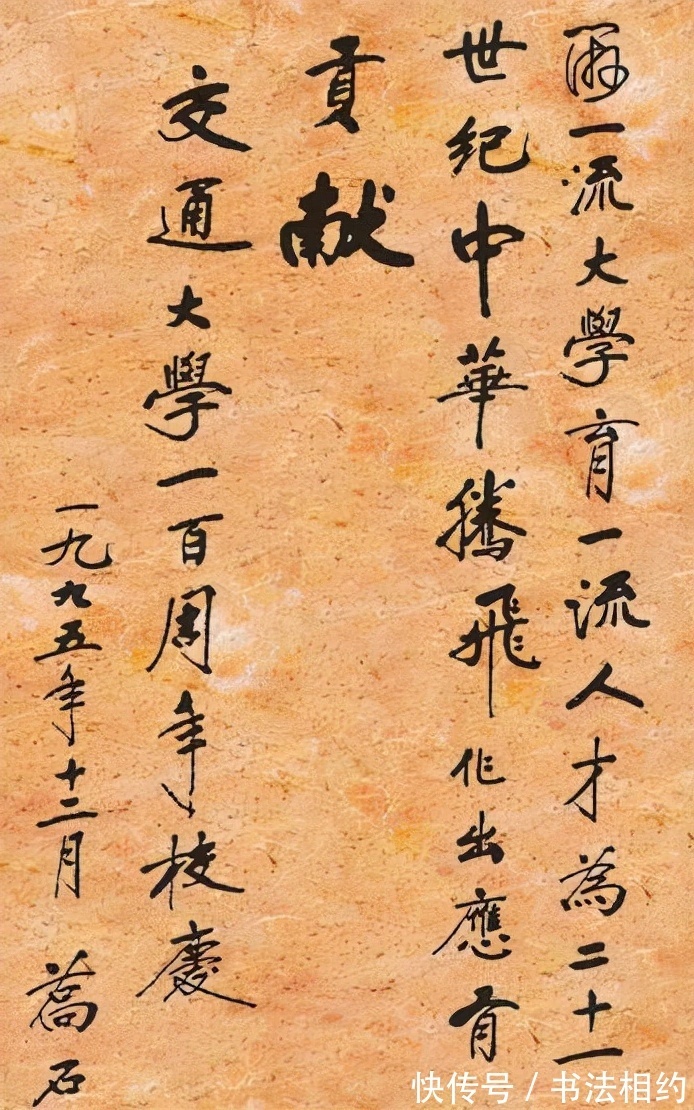 辦一流大學育一流人才為二十一
世紀中華騰飛作出應有
貢献
交通大學一百周年校慶
一九九五年十二月 喬石
快传号 / 书法相约